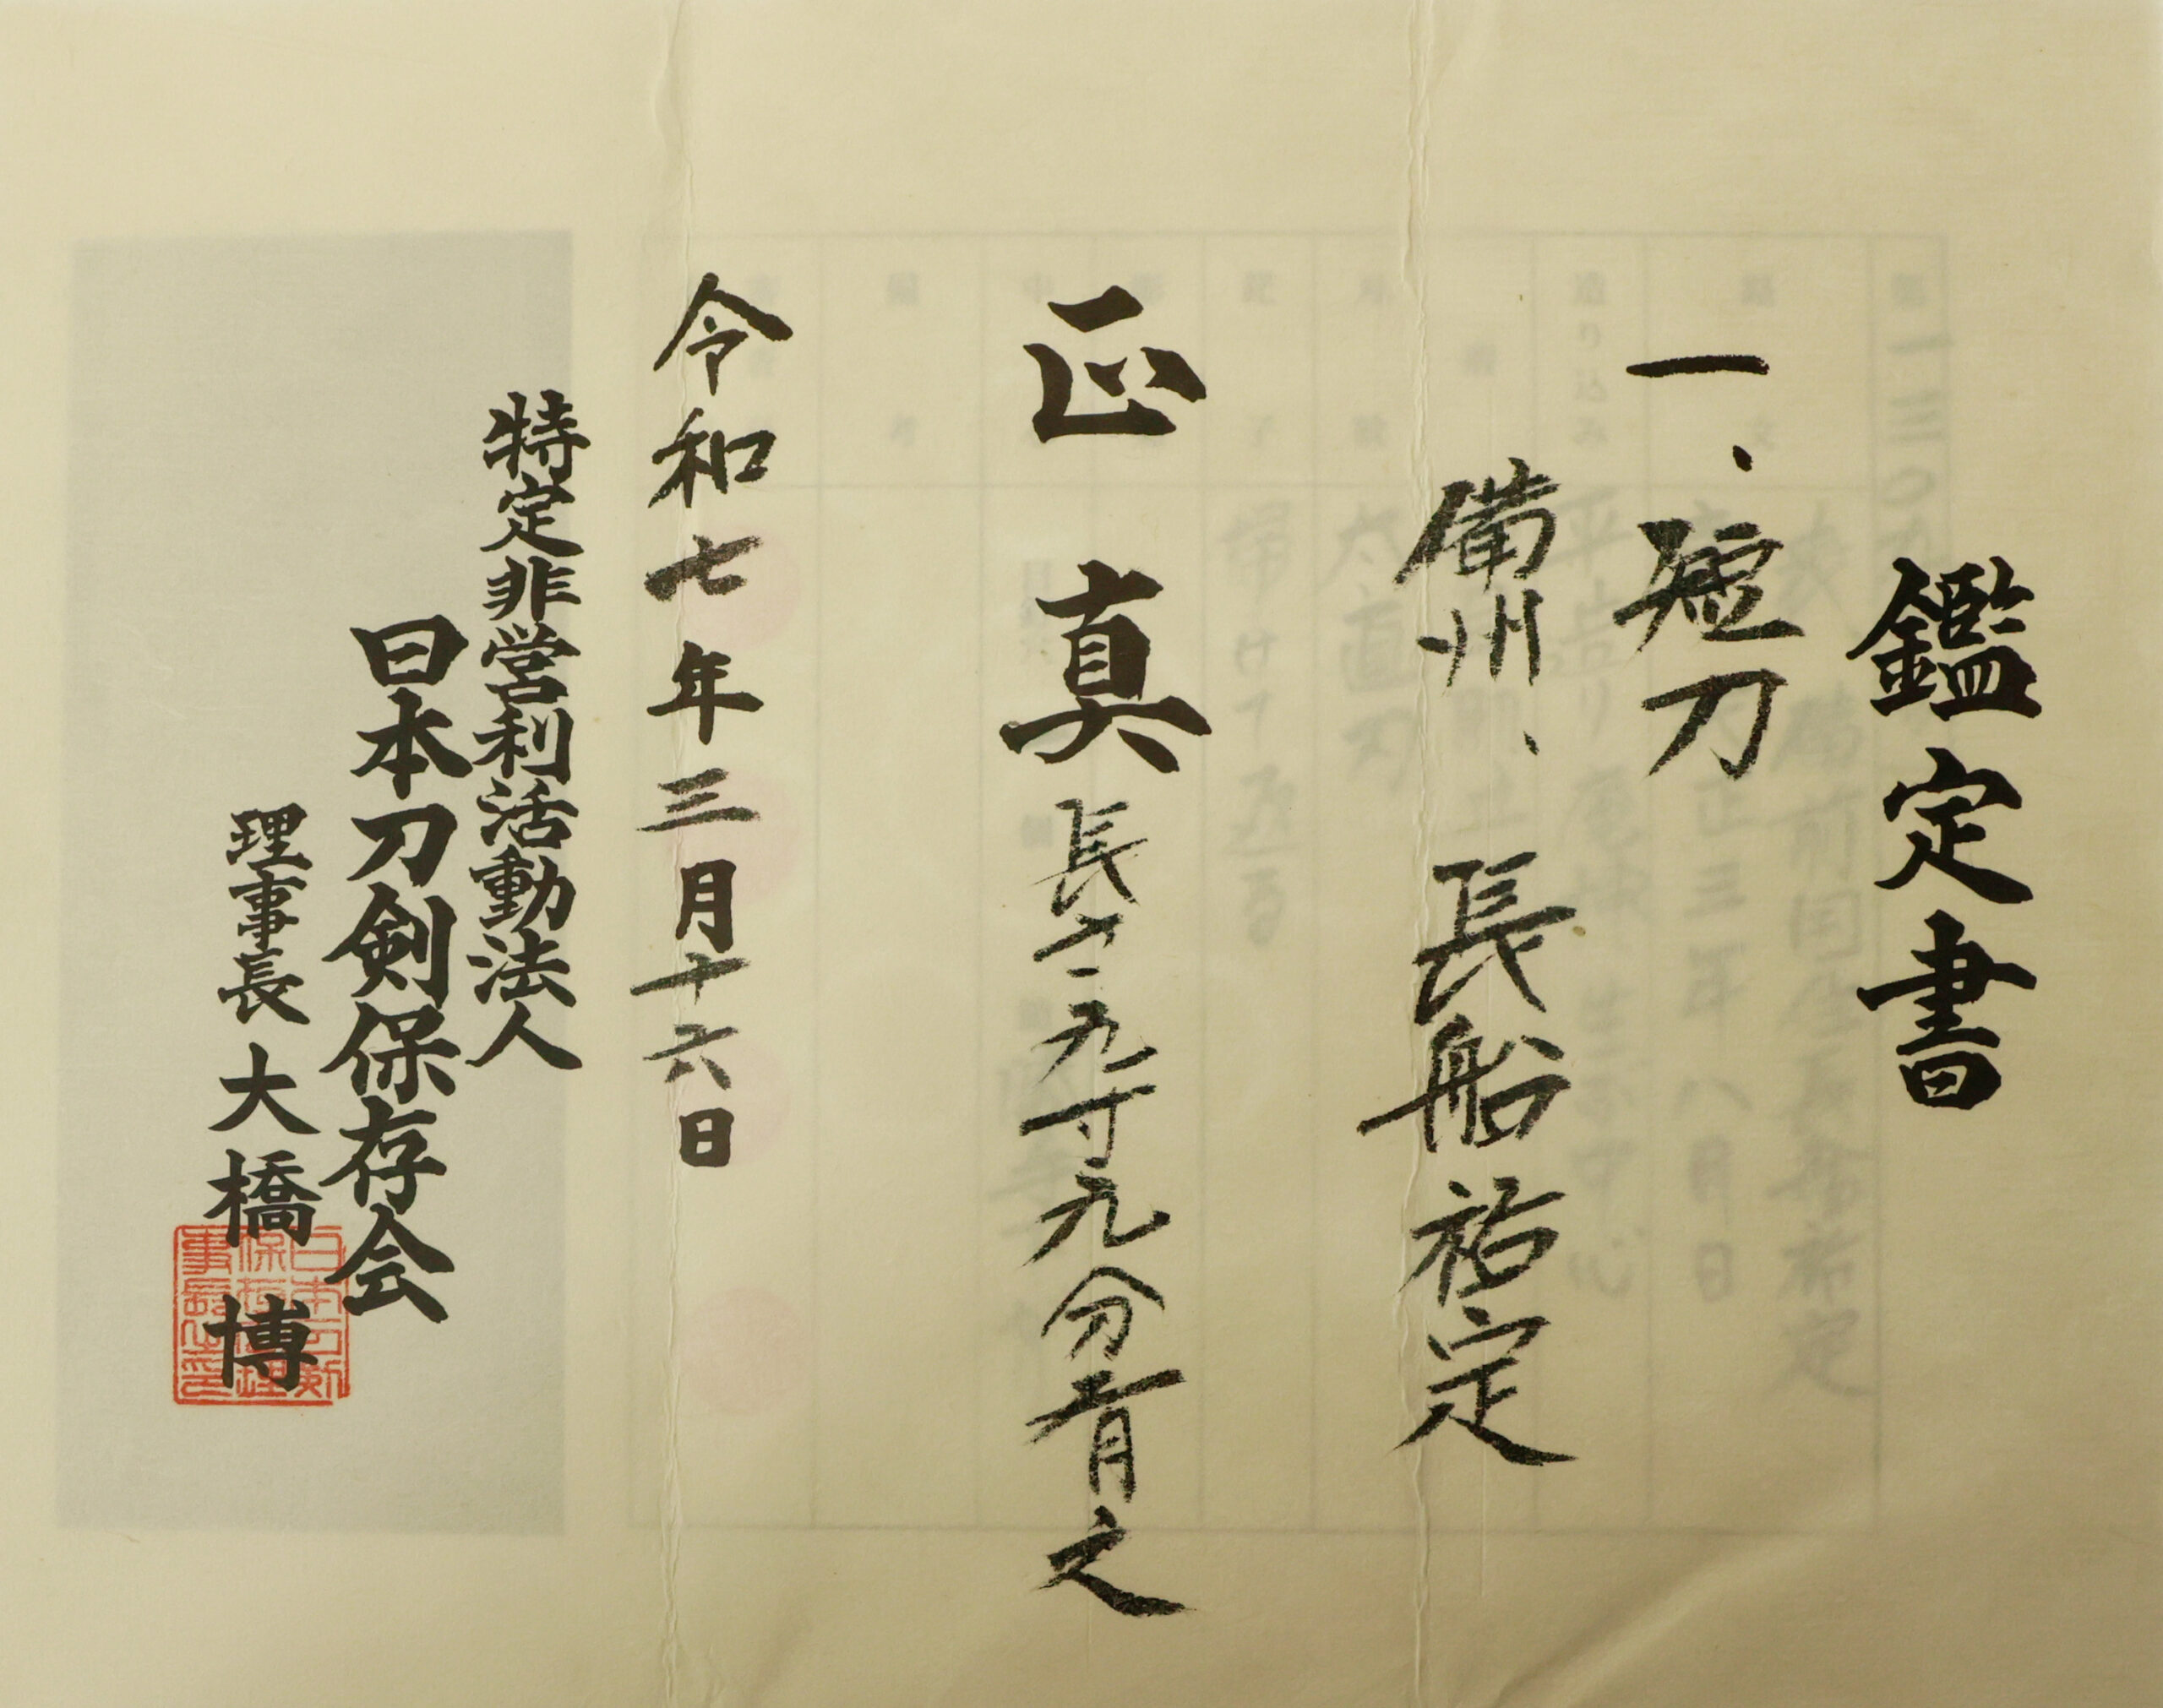 鑑定書
一、短刀
備州、長船祐定
正真 長サ九寸九分有之
令和七年三月十六日
特定非営利活動法人
日本刀剣保存会
理事長 大橋博